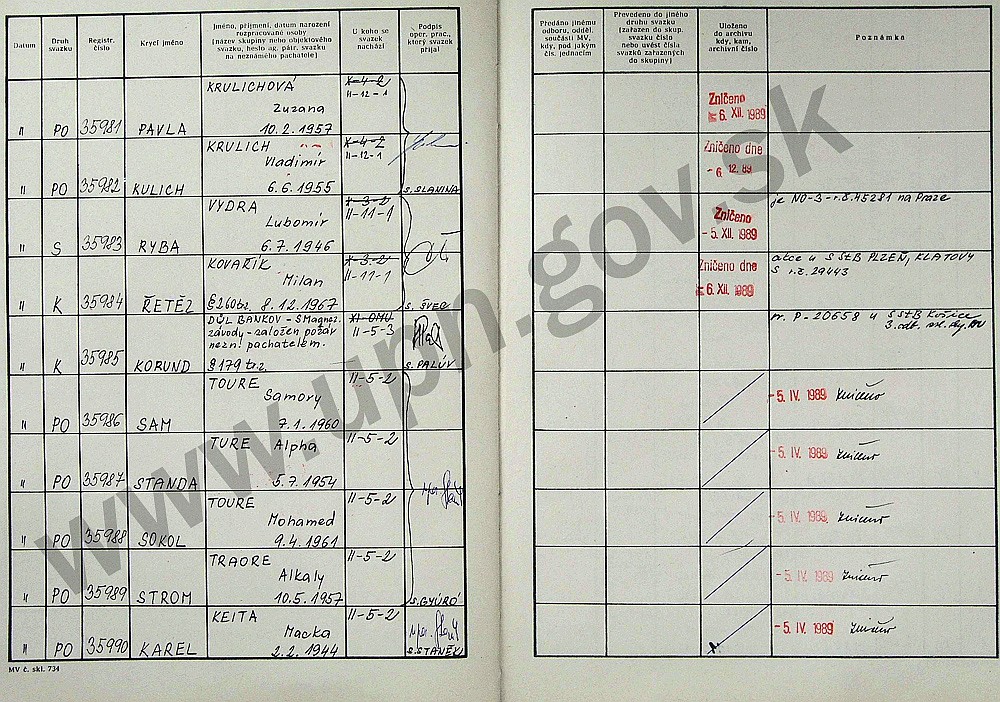 Datum
Druh
svazku
Registr.
číslo
Krycí jméno
Jméno, příjmení, datum narození
rozpracované osoby
(název skupiny nebo objektového
svazku, heslo ag. pátr. svazku
na neznámého pachatele)
U koho se
svazek
nachází
Podpis
oper. prac.,
který svazek
přijal
Předáno jinému
odboru, odděl.
součásti MV,
kdy, pod jakým
čís. jednacím
Převedeno do jiného
druhu svazku
(zařazen do skup.
svazku číslo
nebo uvést čísla
svazků zařazených
do skupiny)
Uloženo
do archivu
kdy, kam,
archivní číslo
Poznámka
KRULICHOVÁ
Zuzana
" PO 35981 PAVLA 10.2.1957
X-4-2
II-12-1
Zničeno
6. XII. 1989
KRULICH
Vladimír
" PO 35982 KULICH 6.6.1955
X-4-2
II-12-1
s. SLANINA
Zničeno dne
- 6. 12. 89
VYDRA
Lubomír
" S 35983 RYBA 6.7.1946
X-3-2
II-11-1
Zničeno
- 5. XII. 1989
je NO-3-r.č.45281 na Praze
KOVAŘÍK
Milan
" K 35984 ŘETĚZ § 260tz. 8.12.1967
X-3-2
II-11-1
s. ŠVEC
Zničeno dne
6. XII. 1989
akce u S StB PLZEŇ, KLATOVY
S r.č. 29443
DŮL BANKOV - SMagnez.
závody - založen požár
nezn. pachatelem.
" K 35985 KORUND § 179 tz.
XI-OMU
II-5-3
s. PALÚV
P-20658 u S StB Košice
3. odb.
TOURE
Samory
" PO 35986 SAM 7.1.1960
II-5-2
- 5. IV. 1989 zničeno
TURE Alpha
" PO 35987 STANDA 5.7.1954
II-5-2
- 5. IV. 1989 zničeno
TOURE
Mohamed
" PO 35988 SOKOL 9.4.1961
II-5-2
- 5. IV. 1989 zničeno
TRAORE
Alkaly
" PO 35989 STROM 10.5.1957
II-5-2
s. GYÜRÓ
- 5. IV. 1989 zničeno
KEITA
Macka
" PO 35990 KAREL 2.2.1944
II-5-2
s. STANĚK
- 5. IV. 1989 zničeno
MV č. skl. 734
www.upn.gov.sk